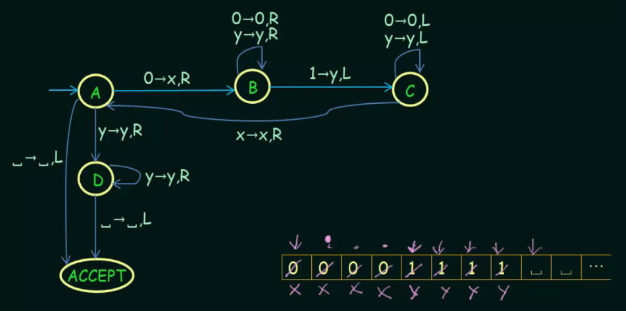 0→0,R
y→y,R
0→0,L
y→y,L
0→x,R
1→y,L
A
B
C
x→x,R
y→y,R
␣→␣,L
D
y→y,R
␣→␣,L
ACCEPT
0 0 0 0 1 1 1 1 ␣ ␣ ...
x x x x y y y y